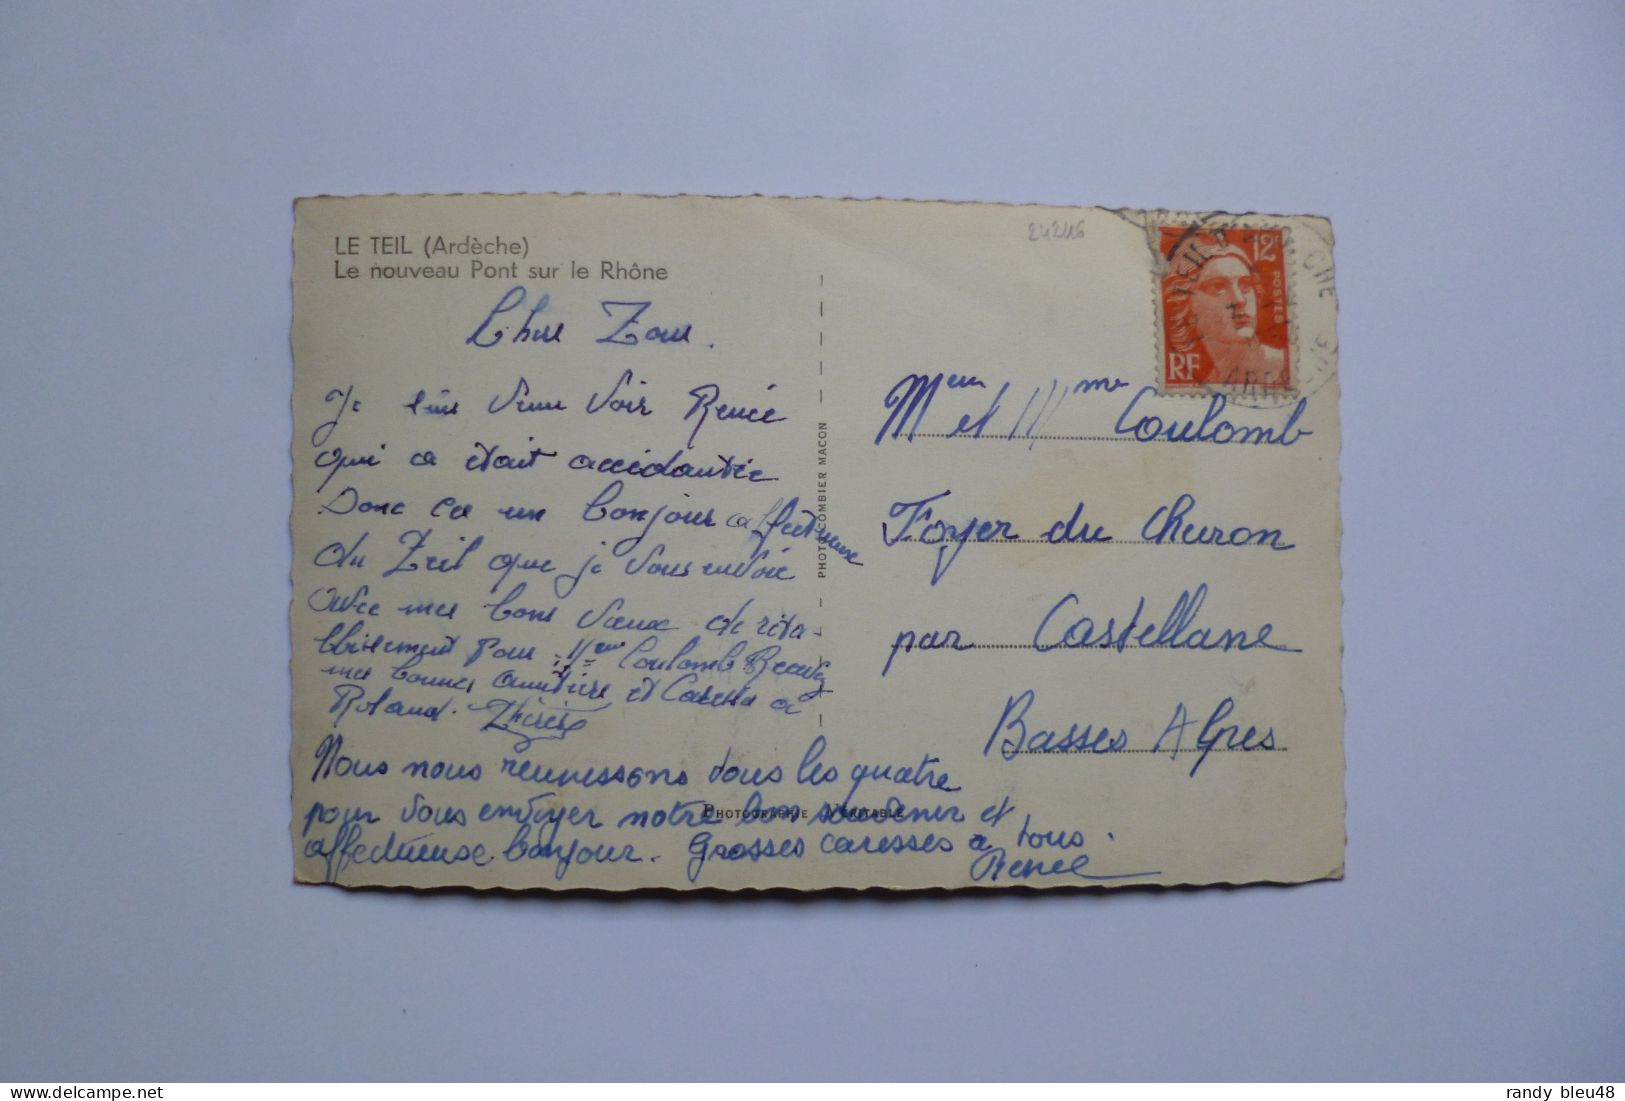 LE TEIL (Ardèche)
Le nouveau Pont sur le Rhône
24246
12F
POSTES
RF
Chere Zoue.
Je suis venu voir Renée
qui a était accidantée
Donc ce un bonjour affectueuse
du Teil que je vous envoie
avec mes bons vœux de réta-
blissement pour Mem Coulomb Recevez
mes bonnes amitiés et Caresse a
Roland. Thérèse
Nous nous reunissons tous les quatre
pour vous envoyer notre bon souvenir et
affectueuse bonjour. Grosses caresses a tous.
Renee
PHOTO COMBIER MACON
PHOTOGRAPHIE VÉRITABLE
Meur et Mme Coulomb
Foyer du Cheiron
par Castellane
Basses Alpes
randy bleu48